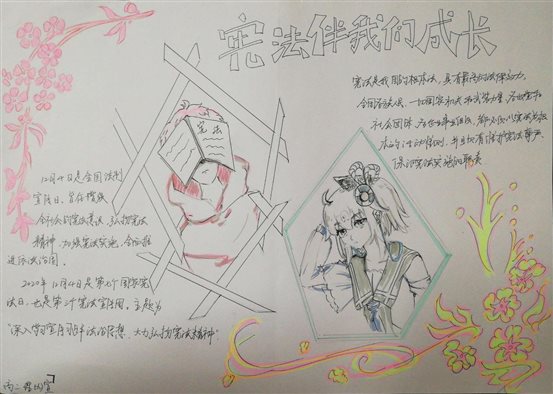 宪法伴我们成长
宪法是我国的根本法，具有最高的法律效力，
全国各族人民、一切国家机关和武装力量、各政党和
社会团体、各企业事业组织，都必须以宪法为根
本的活动准则，并且负有维护宪法尊严、
保证宪法实施的职责
宪法
12月4日是全国法制
宣传日，旨在增强
全社会的宪法意识，弘扬宪法
精神，加强宪法实施，全面推
进依法治国。
2020年12月4日是第七个国家宪
法日，也是第3个宪法宣传周，主题为
"深入学习宣传习近平法治思想，大力弘扬宪法精神"